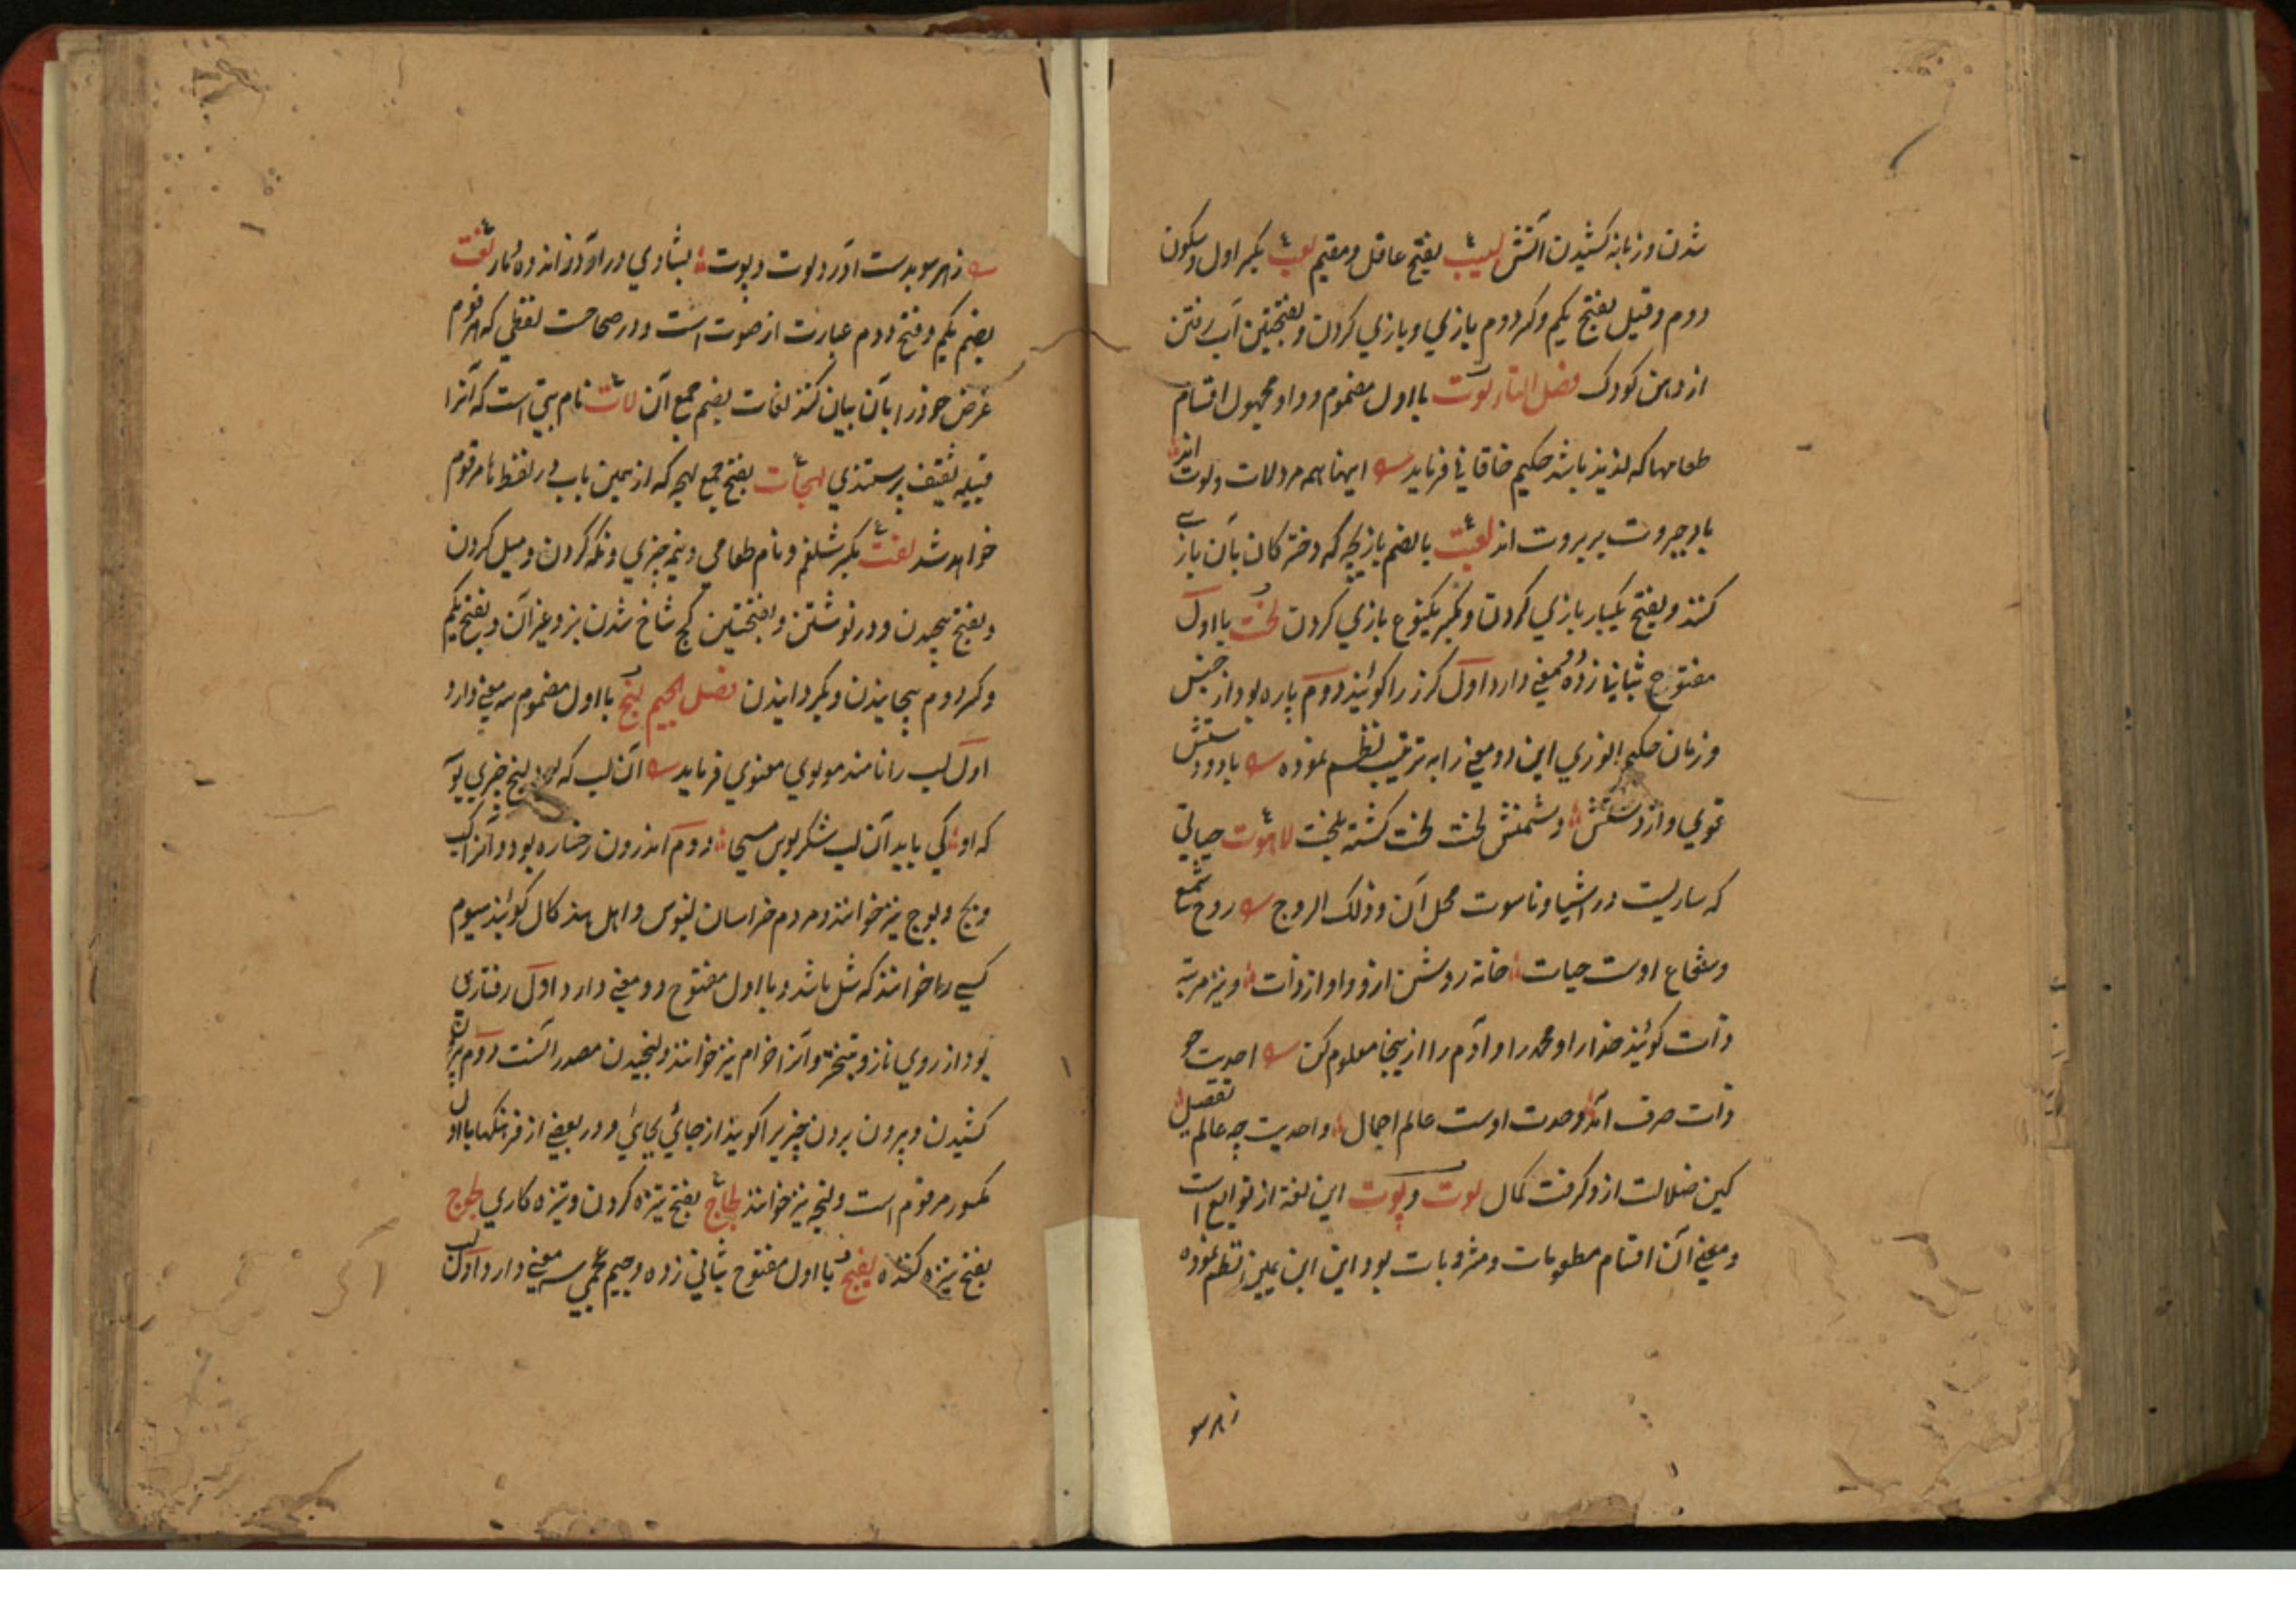 شدن و زبانه کشیدن آتش لبیب بفتح عاقل و مقیم لعب بکسر اول و سکون
دوم و قیل بفتح یکم و کسر دوم بازی و بازی کردن و بفتحتین آب رفتن
از دهن کودک فصل التا لوت با اول مضموم و واو مجهول اقسام
طعامها که لذیذ باشد حکیم خاقانی فرماید اینها همه مرد لات و لوت اند
باد جبروت بر بروت اند لعبت بالضم بازیچه که دخترکان بآن بازی
کنند و بفتح یکبار بازی کردن و بکسر یکنوع بازی کردن لخت با اول
مفتوح بثانی زده معنی دارد اول گرز را گویند دوم پاره بود از جنس
و زمان حکیم انوری این دو معنی را به ترتیب نظم نموده با دو دستش
قوی و از دستش دشمنش لخت لخت گشته بلخت لاهوت حیاتی
که ساریست در اشیا و ناسوت محل آن و ذلک الروح روح شمع
و شعاع اوست حیات خانه روشن ازو و او از ذات و نیز مرتبه
ذات گویند خدا را و محمد را و آدم را ازینجا معلوم کن احدیت چو
ذات صرف آمد وحدت اوست عالم اجمال واحدیت چه عالم تفصیل
کین ضلالت ازو گرفت کمال لوت و پوت این لغة از توابع است
و معنی آن اقسام مطعومات و مشروبات بود این ابن یمین نظم نموده
ز هر سو
ز هر سو بدست آور و لوت و پوت بشادی درآور ز اندوه دمار لغت
بضم یکم و فتح دوم عبارت از صوت است و در صحاحست لفظی که هر قوم
غرض خود را بآن بیان کنند لغات بضم جمع آن لات نام بتی است که آنرا
قبیله ثقیف پرستندی لهجات بفتح جمع لهجه که از همین باب در لفظ ها مرقوم
خواهد شد لفت بکسر شلغم و نام طعامی و نیمه چیزی و نگه کردن و میل کردن
و بفتح پیچیدن و در نوشتن و بفتحتین کج شاخ شدن بز و غیر آن و بفتح یکم
و کسر دوم پیچانیدن و بگردانیدن فصل الجیم لنج با اول مضموم سه معنی دارد
اول لب را نامند مولوی معنوی فرماید آن لب که بود لنج خری بوسه
که او کی یابد آن لب شکربوس مسیحا دوم اندرون رخساره بود و آنرا کب
و بج و لوج نیز خوانند و مردم خراسان لنبوس و اهل هند کال گویند سیوم
کسی را خوانند که شل باشد و با اول مفتوح دو معنی دارد اول رفتاری
بود از روی ناز و تبختر و آنرا خرام نیز خوانند و لنجیدن مصدر آنست دوم بیرون
کشیدن و بیرون بردن چیزیرا گویند از جائی بجائی و در بعضی از فرهنگها با اول
مکسور مرقوم است و لنجه نیز خوانند لجاج بفتح ستیزه کردن و ستیزه کاری لجوج
بفتح ستیزه کننده لفج با اول مفتوح بثانی زده و جیم عجمی سه معنی دارد اول لب